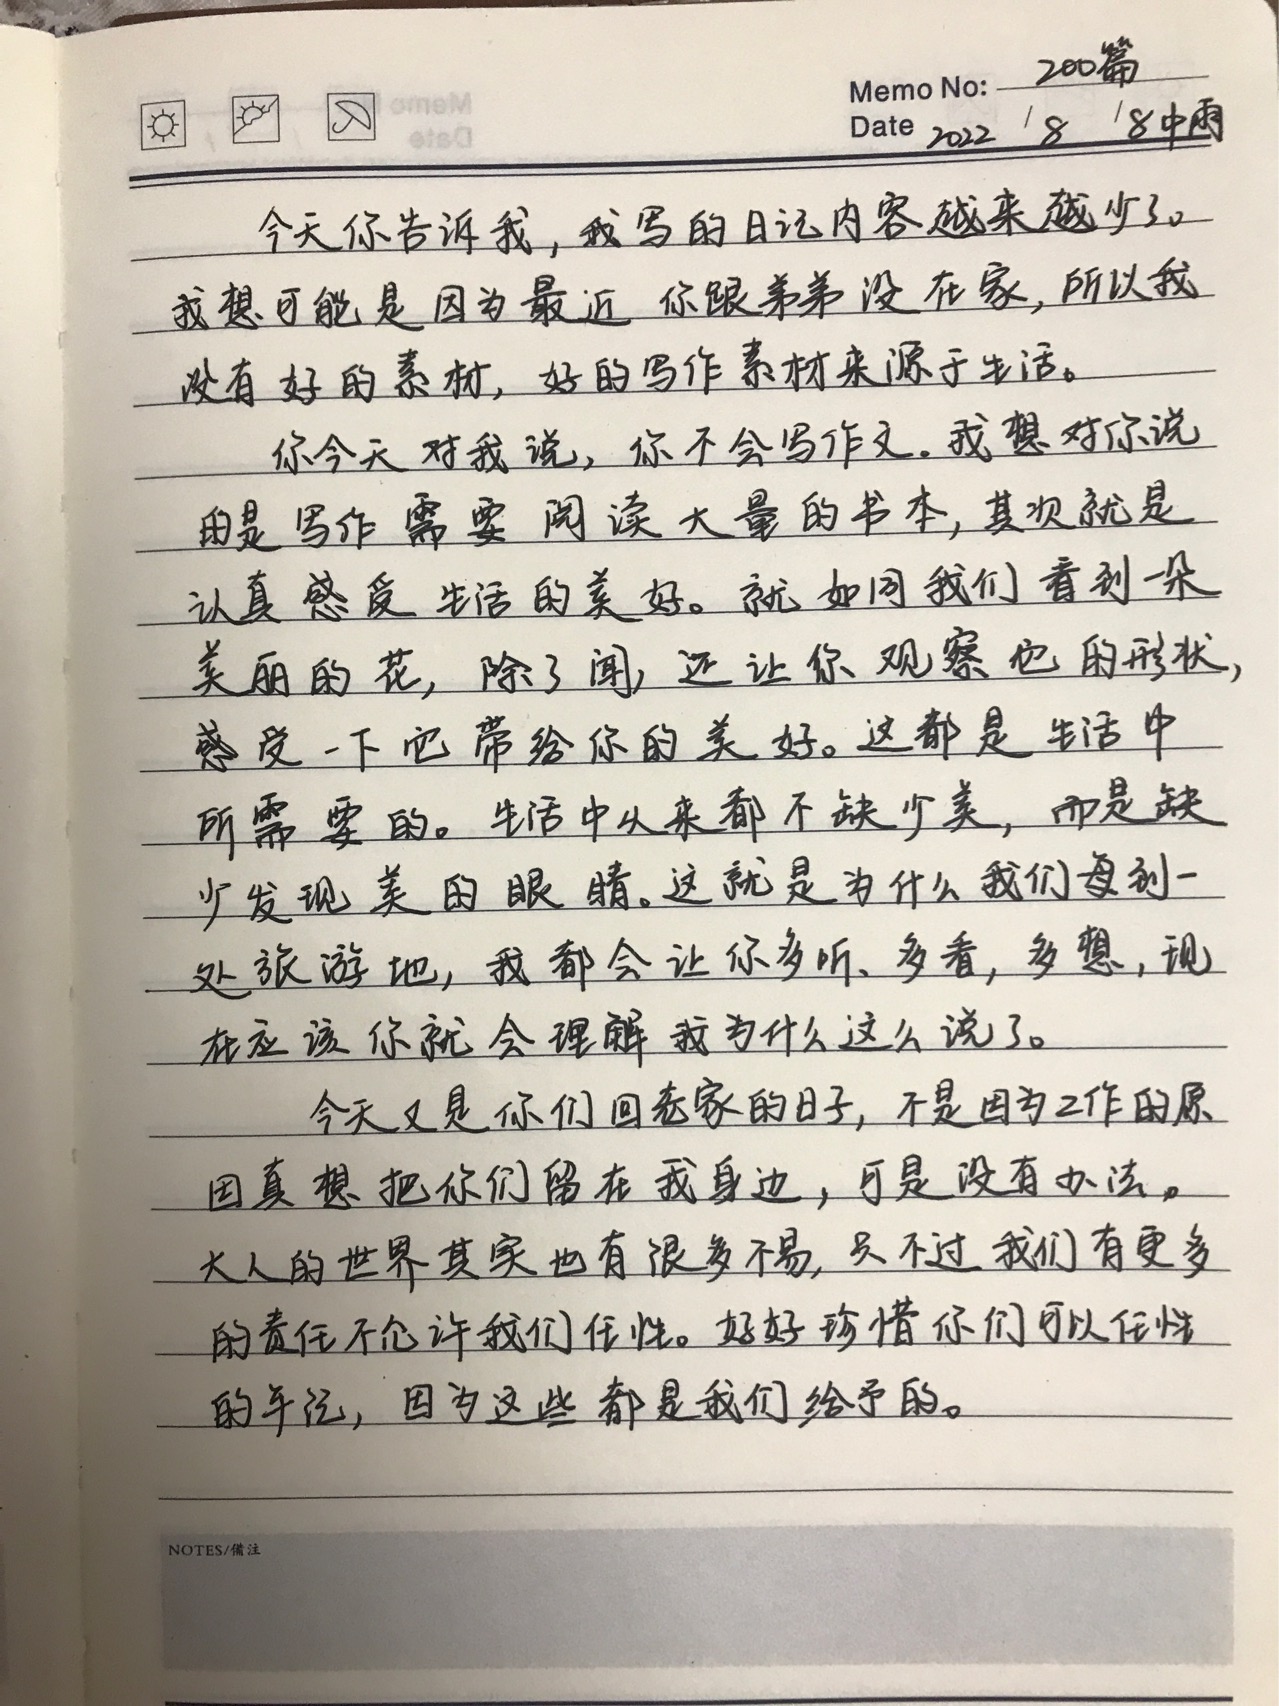 Memo No: 200篇
Date 2022 / 8 / 8 中雨
今天你告诉我,我写的日记内容越来越少了。
我想可能是因为最近你跟弟弟没在家,所以我
没有好的素材,好的写作素材来源于生活。
你今天对我说,你不会写作文.我想对你说
的是写作需要阅读大量的书本,其次就是
认真感受生活的美好。就如同我们看到一朵
美丽的花,除了闻,还让你观察它的形状,
感受一下它带给你的美好。这都是生活中
所需要的。生活中从来都不缺少美,而是缺
少发现美的眼睛。这就是为什么我们每到一
处旅游地,我都会让你多听、多看,多想,现
在应该你就会理解我为什么这么说了。
今天又是你们回老家的日子,不是因为工作的原
因真想把你们留在我身边,可是没有办法。
大人的世界其实也有很多不易,只不过我们有更多
的责任不允许我们任性。好好珍惜你们可以任性
的年纪,因为这些都是我们给予的。
NOTES/備注